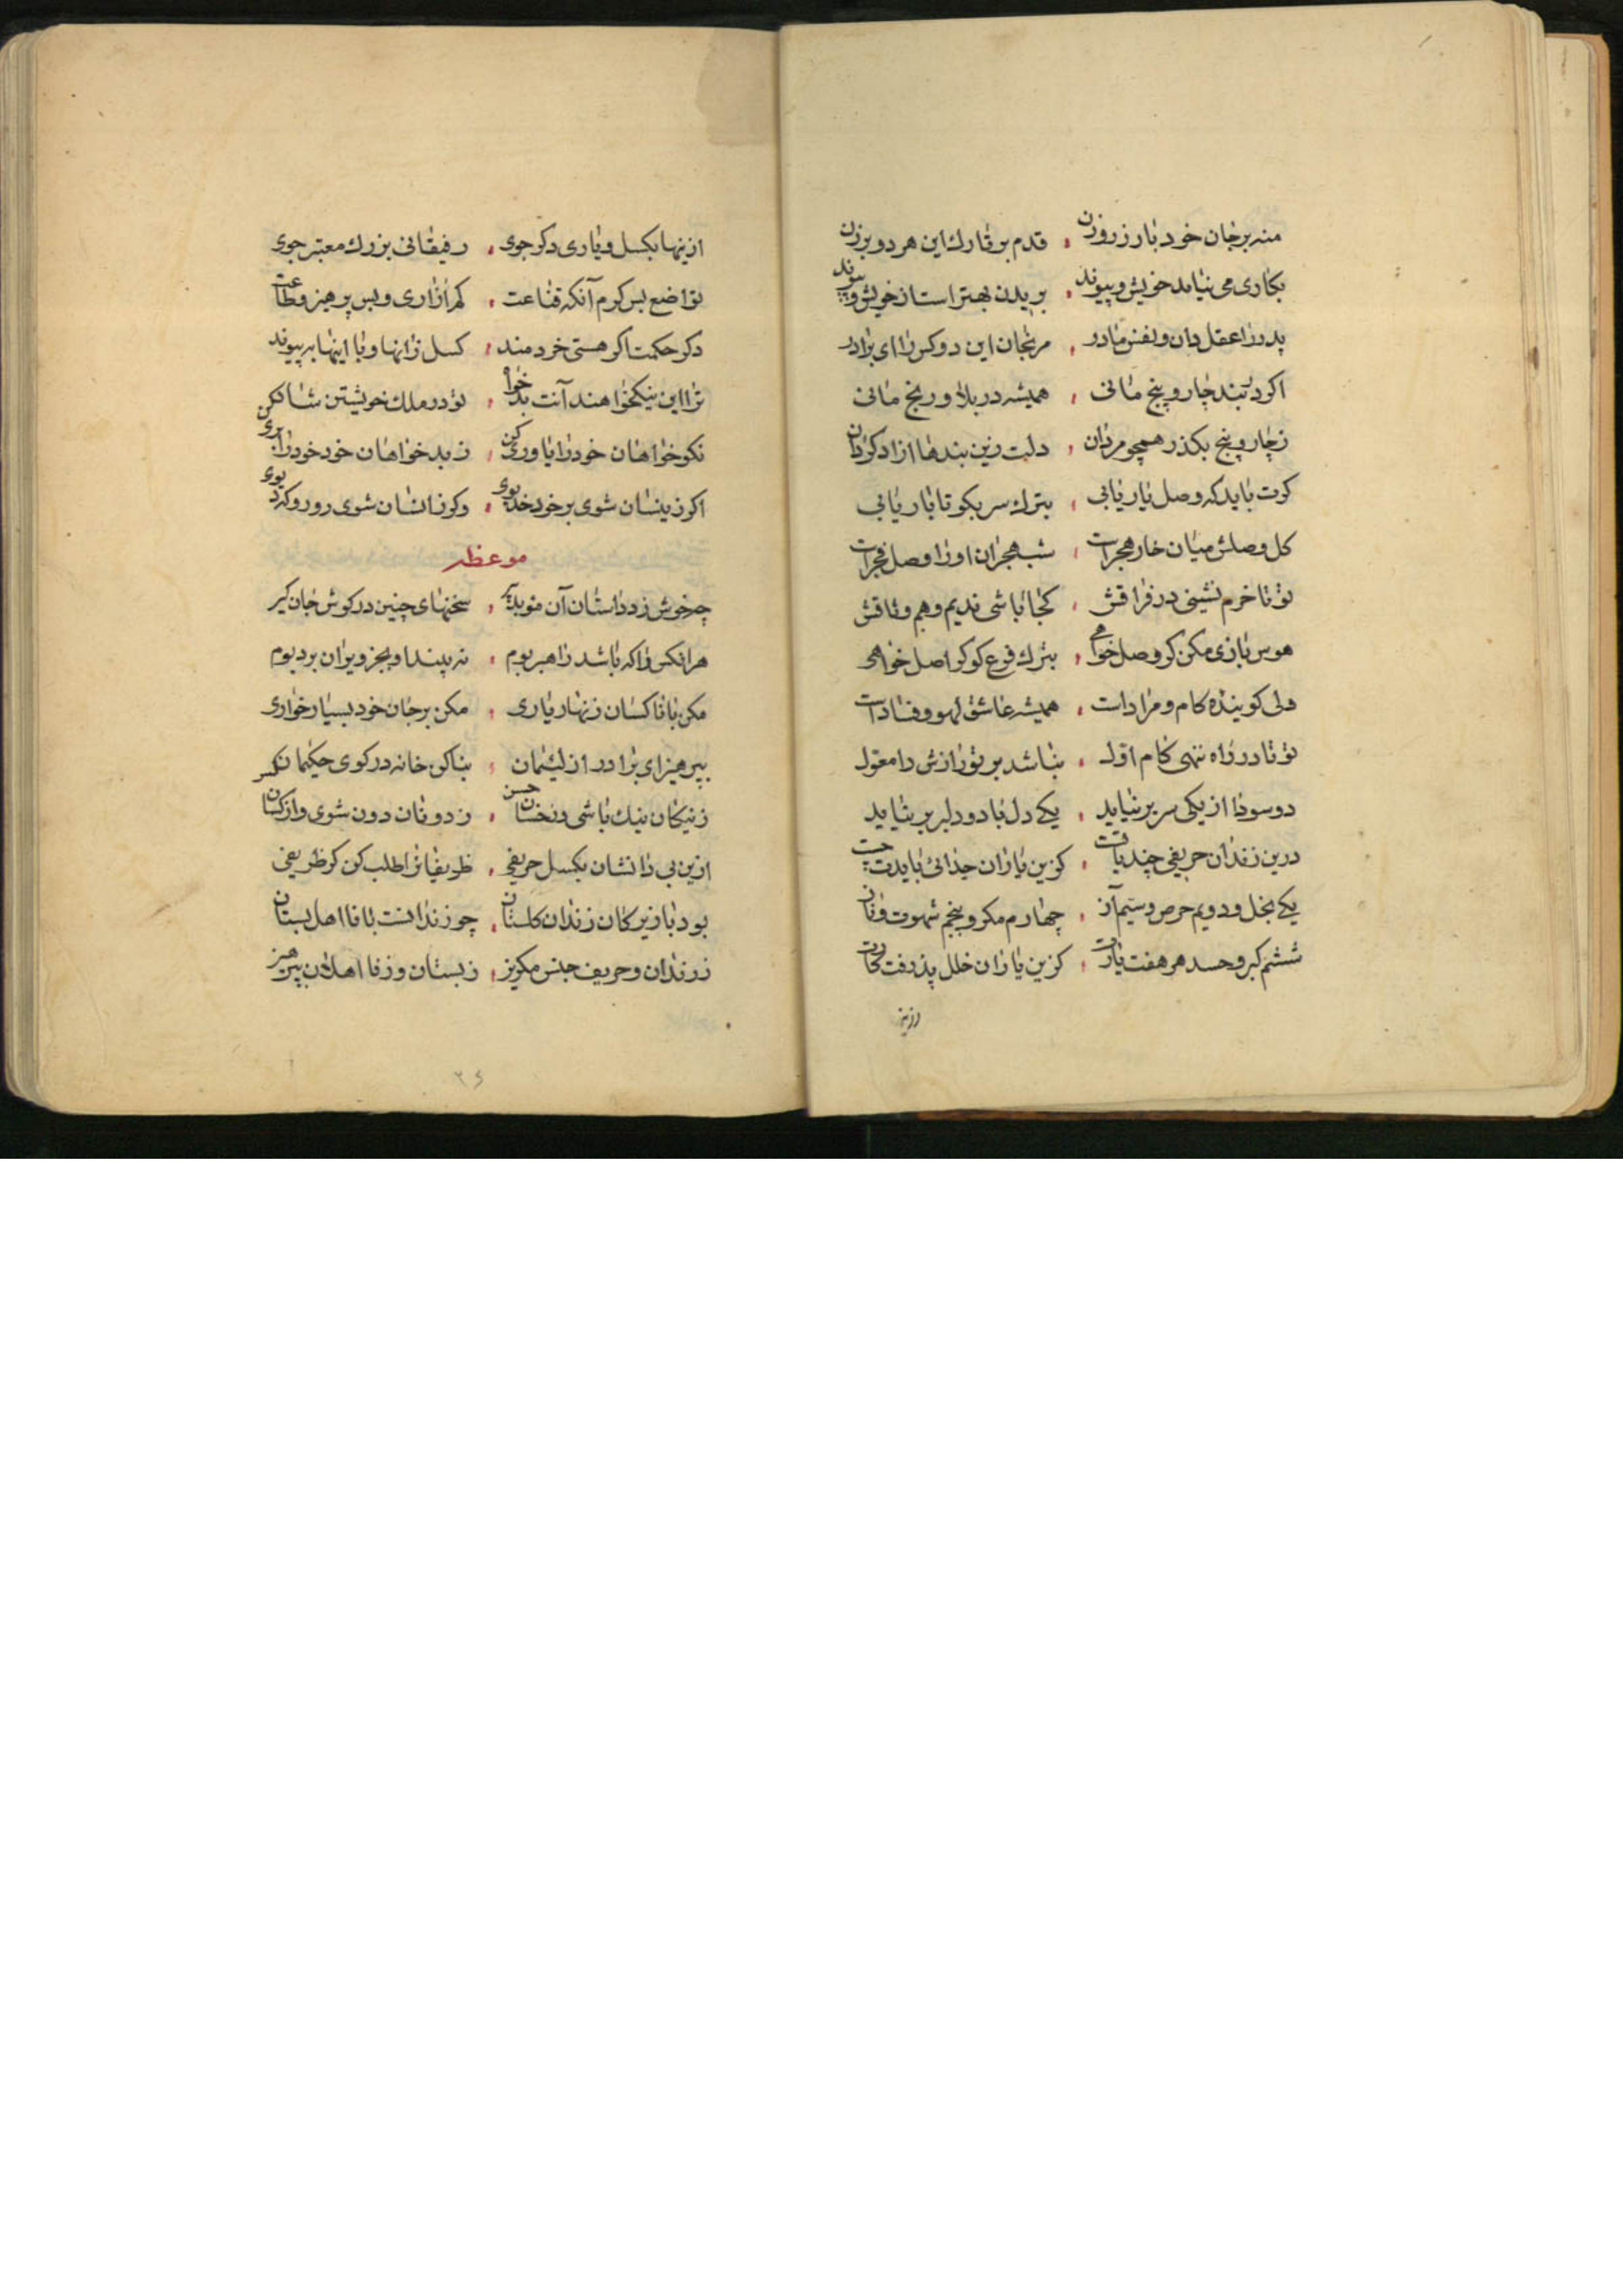 منه بر جان خود بار زر و زن قدم بر تارك این هر دو بر زن
بكاری می نیاید خویش و پیوند بریدن بهتر است از خویش و پیوند
پدر را عقل دان و نفس مادر مرنجان این دو كس را ای برادر
اكر در بند چار و پنج مانی همیشه در بلا و رنج مانی
ز چار و پنج بكذر همچو مردان دلت زین بندها ازاد كردان
كرت باید كه وصل یار یابی بترك سر بكو تا بار یابی
كل وصلش میان خار هجرانست شب هجران او را وصل فجرانست
تو تا خرم نشینی در فراقش كجا باشی ندیم و هم وثاقش
هوس بازی مكن كر وصل خواهی بترك فرع كو كر اصل خواهی
دلی كو بنده كام و مرادست همیشه عاشق لهو و فسادست
تو تا در راه ننهی كام اول نباشد بر تو رازش را معول
دو سودا از یكی سر بر نیاید یكی دل با دو دلبر بر نیاید
درین زندان حریفی چند یارت كزین یاران جدائی بایدت جست
یكی بخل و دویم حرص و سیم آز چهارم مكر و پنجم شهوت و ناز
ششم كبر و حسد هر هفت یارت كزین یاران خلل پذرفت كارت
ازینها بكسل و یاری دكر جوی رفیقانی بزرك معتبر جوی
تواضع پس كرم آنكه قناعت كم آزاری و پس پرهیز و طاعت
دكر حكمت اكر هستی خردمند كسل زانها و با اینها بپیوند
ترا این نیكخواهند آنت بدخواه تو در ملك خویشتن شاه
نكوخواهان خود را یاوری كن ز بدخواهان خود خود را بری كن
اكر زینسان شوی برخود خدیوی وكر زانسان شوی رو رو كه دیوی
موعظه
چه خوش زد داستان آن موبد پیر سخنهای چنین در كوش جان كیر
هر انكس را كه باشد راهبر بوم نه بیند او بجز ویران بر و بوم
مكن با ناكسان زنهار یاری مكن بر جان خود بسیار خواری
بپرهیز ای برادر از لئیمان بنا كن خانه در كوی حكیمان
ز نیكان نیك باشی وز خسان خس ز دونان دون شوی واز كسان كس
ازین بی دانشان بكسل حریفی ظریفانرا طلب كن كر ظریفی
بود با زیركان زندان كلستان چو زندانست با نا اهل بستان
ز زندان و حریف جنس مكریز ز بستان و ز نا اهلان بپرهیز